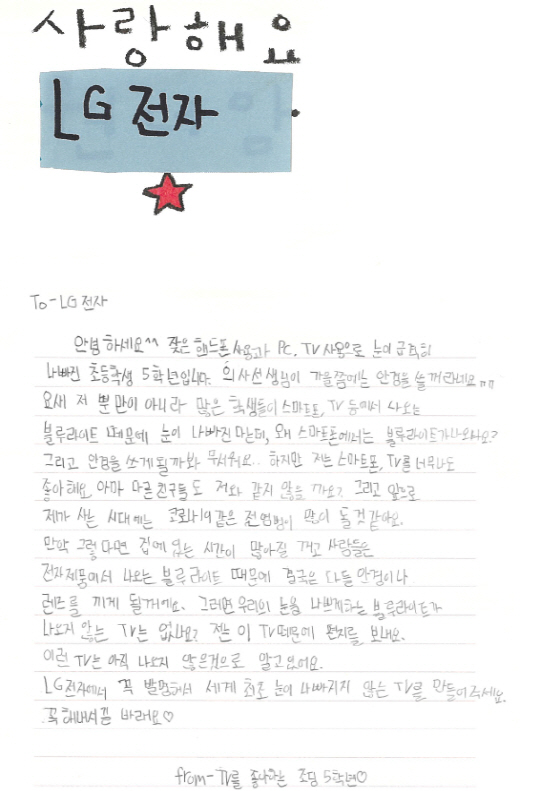 사랑해요
LG전자
To-LG전자
안녕하세요^^ 잦은 핸드폰 사용과 PC, TV 사용으로 눈이 급격히
나빠진 초등학생 5학년입니다. 의사선생님이 가을쯤에는 안경을 쓸꺼라네요ㅠㅠ
요새 저 뿐만이 아니라 많은 학생들이 스마트폰, TV 등에서 나오는
블루라이트 때문에 눈이 나빠진다는데, 왜 스마트폰에서는 블루라이트가 나오나요?
그리고 안경을 쓰게될까봐 무서워요.. 하지만 저는 스마트폰, TV를 너무나도
좋아해요. 아마 다른친구들도 저와 같지 않을까요? 그리고 앞으로
제가 사는 시대에는 코로나19같은 전염병이 많이 돌것 같아요.
만약 그렇다면 집에 있는 시간이 많아질 꺼고 사람들은
전자제품에서 나오는 블루라이트 때문에 결국은 다들 안경이나
렌즈를 끼게 될거예요. 그러면 우리의 눈을 나쁘게하는 블루라이트가
나오지 않는 TV는 없나요? 저는 이 TV때문에 편지를 보내요.
이런 TV는 아직 나오지 않은것으로 알고있어요.
LG전자에서 꼭 발명해서 세계 최초 눈이 나빠지지 않는 TV를 만들어주세요.
꼭 해내시길 바래요♡
from-TV를 좋아하는 초딩 5학년♡